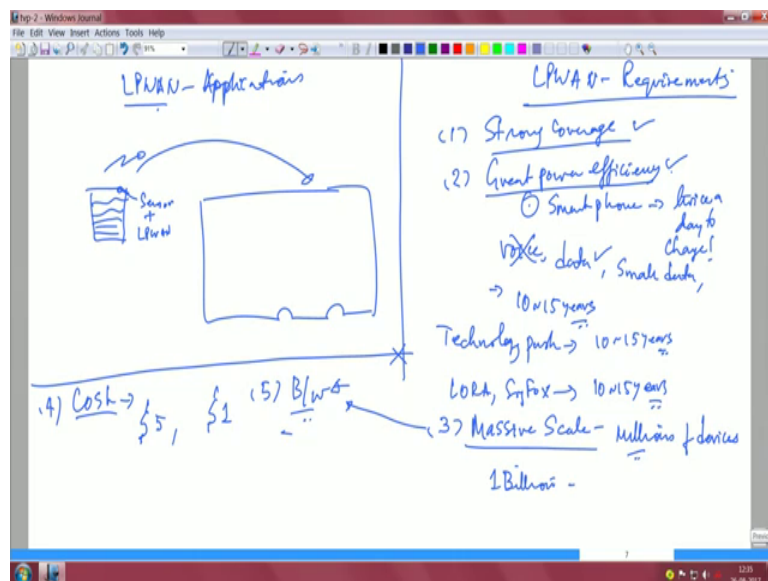 tvp-2 - Windows Journal
File Edit View Insert Actions Tools Help
91%
LPWAN - Applications
Sensor
+
LPWAN
LPWAN - Requirements
(1) Strong Coverage ✓
(2) Great power efficiency ✓
Smart phone → twice a
day to
charge!
voice, data ✓, Small data,
→ 10~15 years
Technology push → 10~15 years
LORA, SigFox → 10~15 years
(3) Massive Scale - Millions of devices
1 Billion -
(4) Cost → $5, $1
(5) B/W
7
12:35